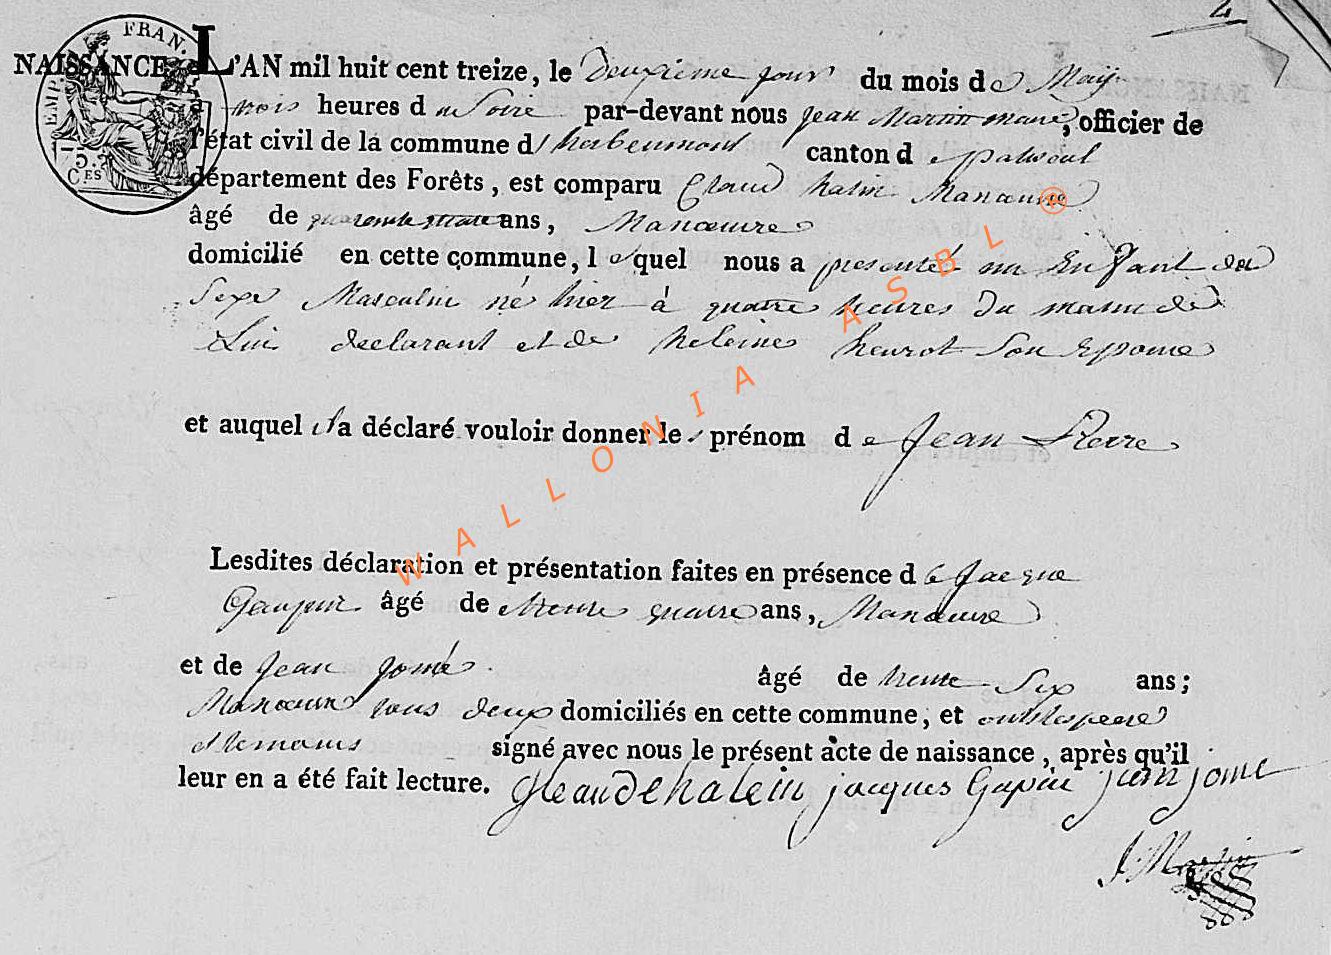 4
EMP. FRAN.
75.
C.ES
NAISSANCE. L'AN mil huit cent treize, le Deuxieme jour du mois de Maÿ
à trois heures du Soire par-devant nous jean Martin maire, officier de
l'état civil de la commune d'herbeumont canton de paliseul
département des Forêts, est comparu Claud halin Manœuvre
âgé de quarente ans, Manœuvre
domicilié en cette commune, lequel nous a presenté un Enfant du
Sexe Masculin né hier à quatre heures Du matin de
Lui declarant et de heleine henrot Son Epouse
et auquel il a déclaré vouloir donner les prénom de Jean Pierre
Lesdites déclaration et présentation faites en présence de Jacque
Gaupin âgé de trente quatre ans, Manœuvre
et de Jean Jomé âgé de trente Six ans;
Manœuvre tous deux domiciliés en cette commune, et ont le pere
et temoins signé avec nous le présent acte de naissance, après qu'il
leur en a été fait lecture. Gleaude halein jacques Gapin jean jome
J Martin
WALLONIA ASBL ®